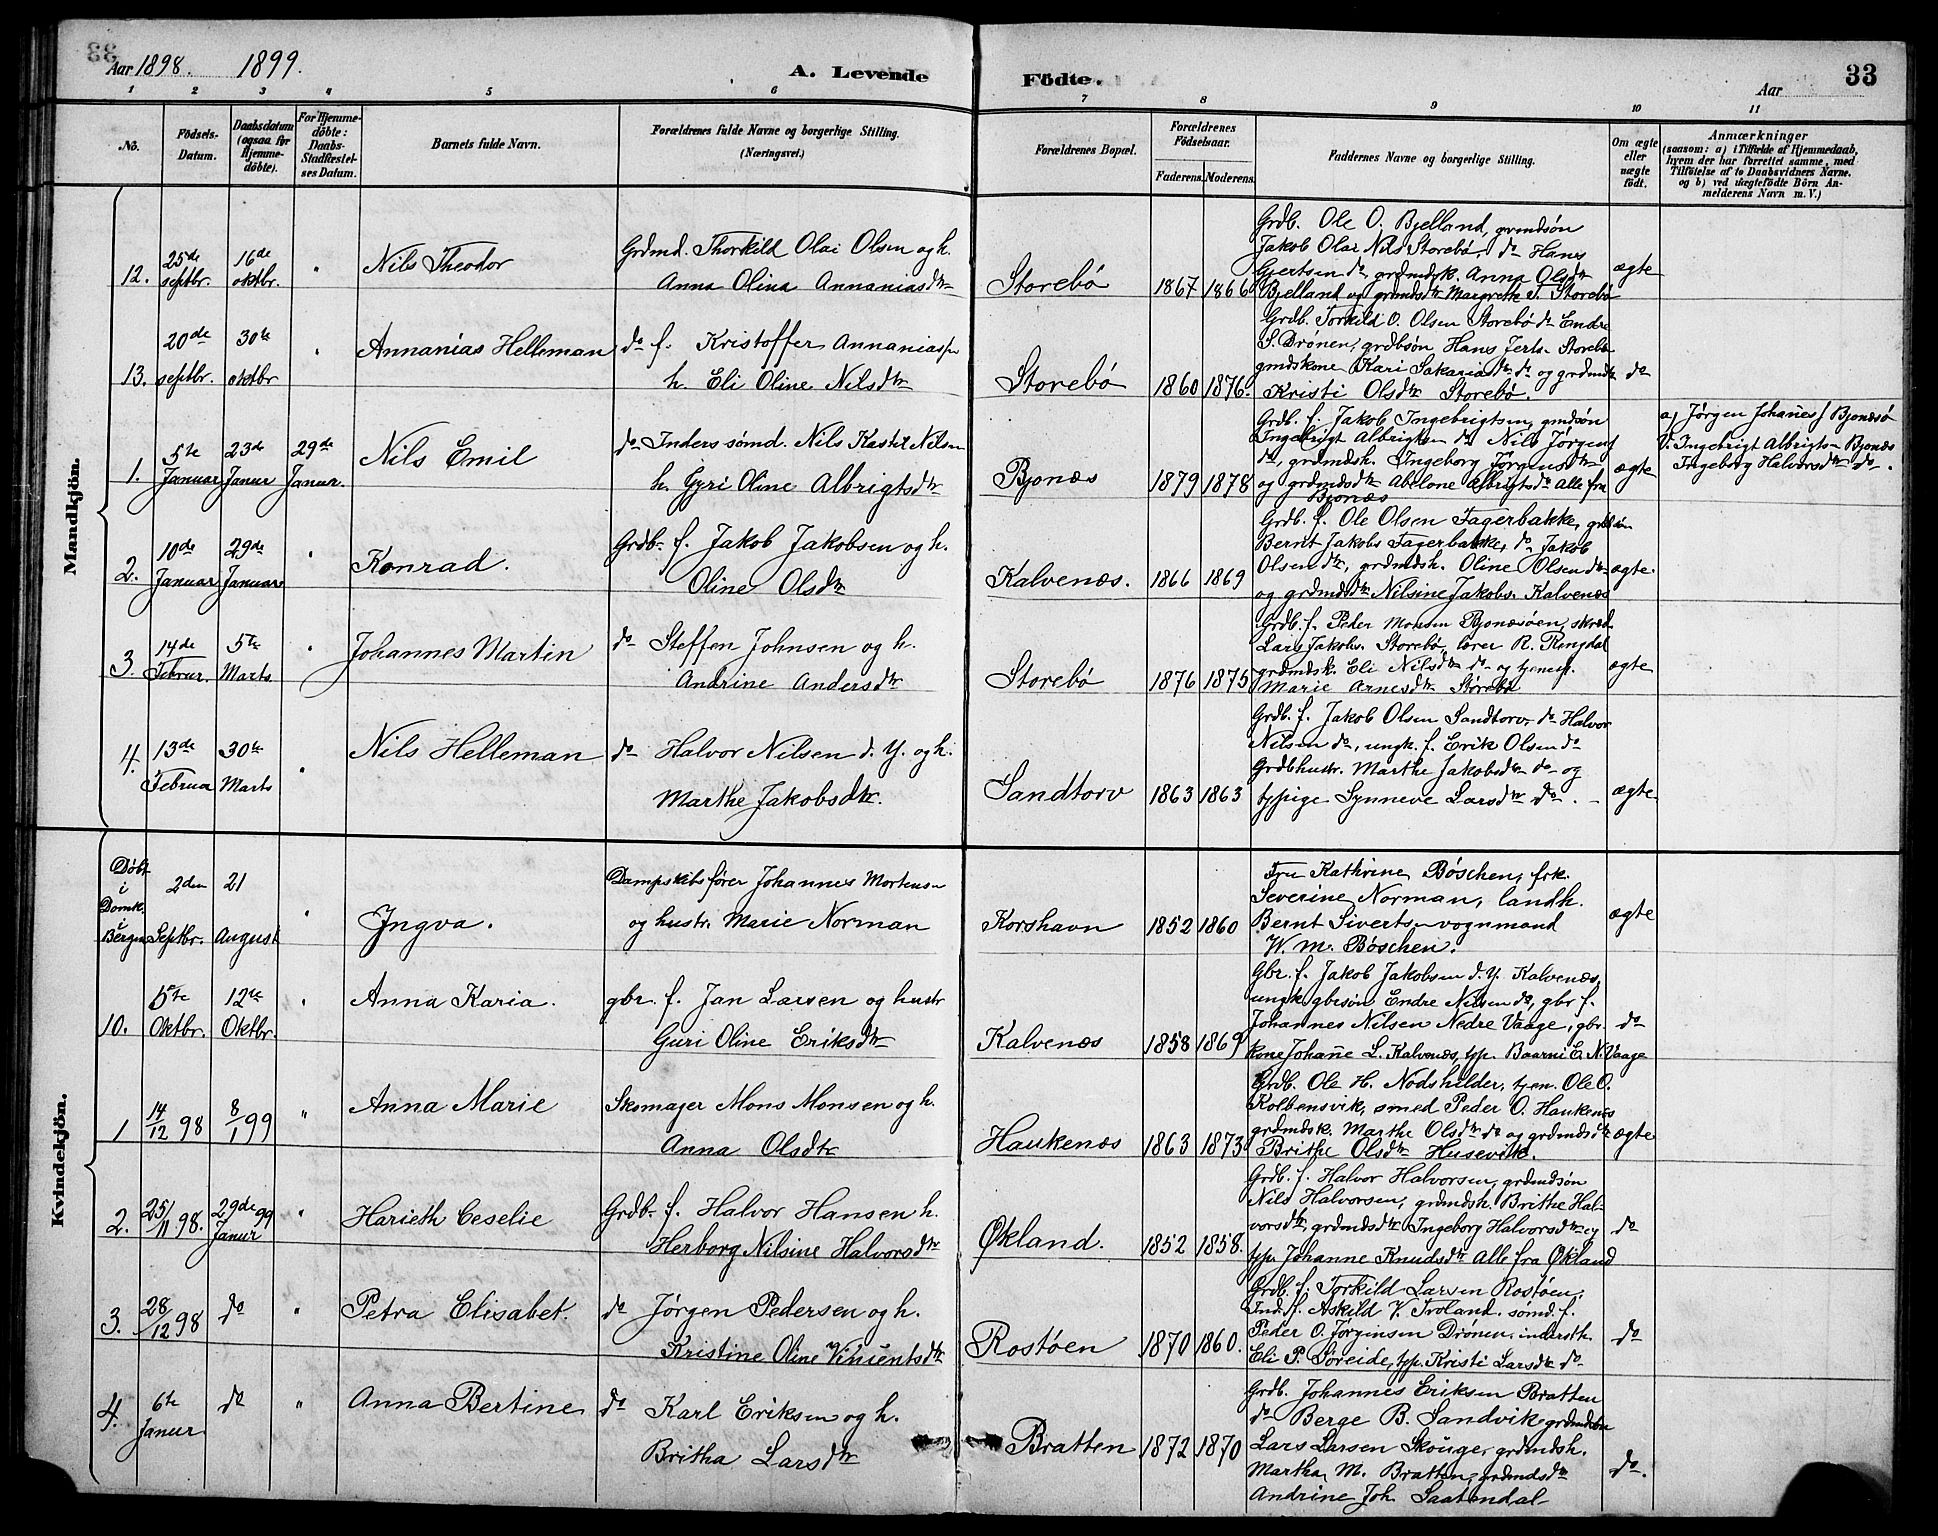 Aar 1898. 1899. A. Levende Födte. Aar 33
1 2 3 4 5 6 7 8 9 10 11
No.
Födsels-
Datum.
Daabsdatum
(ogsaa for
Hjemme-
döbte).
For Hjemme-
döbte:
Daabs-
Stadfæstel-
ses Datum.
Barnets fulde Navn.
Forældrenes fulde Navne og borgerlige Stilling.
(Næringsvei.)
Forældrenes Bopæl.
Forældrenes
Födselsaar.
Faderens. Moderens.
Faddernes Navne og borgerlige Stilling.
Om ægte
eller
uægte
födt.
Anmærkninger
(saasom: a) i Tilfælde af Hjemmedaab,
hvem der har forrettet samme, med
Tilföielse af to Daabsvidners Navne.
og b) ved uægtefödte Börn An-
melderens Navn m. V.)
Mandkjön.
12. 25de septbr. 16de oktbr. " Nils Theodor
Grdmd. Thorkild Olai Olsen og h.
Anna Olina Annaniasdtr
Storebö 1867 1866
Grdb. Ole O. Bjelland, grmdsön
Jakob Olai Nils Storebø, do Hans
Gjertsen do, grdmdsk. Anna Olsdtr
Bjelland og grdmdsdtr Margrethe T. Storebø
ægte
13. 20de septbr. 30te oktbr " Annanias Helleman
do f. Kristoffer Annanias/n
h. Eli Oline Nilsdtr
Storebö 1860 1876.
Grdb. Torkild O. Olsen Storebö do Endre
S. Drönen, grdbsön Hans Jerts. Storebø
gmdskone Kari Sakariasdtr do og grdmdtr
Kristi Olsdtr Storebö.
do
1. 5te Januar 23de Janur 29de Janur. Nils Emil
do Inders sömd. Nils Kastet Nilsen
h. Gyri Oline Albrigtsdtr
Bjonæs 1879 1878
Grdb. f. Jakob Ingebrigtsen, gmdsön
Ingebrigt Albrigtsen do Nils Jörgens
do, grdmdsh. Ingeborg Jörgensdtr
og grdmdsdtr Abelone Albrigtsdtr Alle fra
Bjonæs
ægte
a) Jörgen Johanes/ Bjonesö
V. Ingebrigt Albrigts- Bjonæs
Ingeborg Halvorsdtr do.
2. 10de Januar 29de Januar " Konrad.
Grdbr. f. Jakob Jakobsen og h.
Oline Olsdtr
Kalvenæs. 1866 1869
Grdb. f. Ole Olsen Fagerbakke, grdbsön
Bernt Jakobs Fagerbakke, do Jakob
Olsen do, grdmdsh. Oline Olsen do
og grdmdsdtr Nilsine Jakobs. Kalvenæs
ægte.
3. 14de Februr. 5te Marts " Johannes Martin
do Steffen Johnsen og h.
Andrine Andersdtr
Storebö 1876 1875
Grdb. f. Peder Monsen Bjonæsöen, skræd.
Lars Jakobs. Storebø, lærer R. Ringdal
grdmdsk. Eli Nilsdtr do og tjenestp.
Marie Arnesdtr Storebö
ægte
4. 13de Februa 30te Marts " Nils Helleman
do Halvor Nilsen d. Y. og h.
Marthe Jakobsdtr.
Sandtorv 1863 1863
Grdb. f. Jakob Olsen Sandtorv, do Halvor
Nilsen do, ungk. f. Erik Olsen do
Grdbhustr. Marthe Jakobsdtr do og
tjpige Synneve Larsdtr do.
ægte.
Kvindekjön.
Döbt i Domk. i Bergen 2den Septbr. 21 August " Ingva.
Dampskibsförer Johannes Mortensen
og hustr. Marie Norman
Korshavn 1852 1860
Fru Kathrine Böschen, frk.
Severine Norman, landh.
Bernt Sivertsen vognmand
W. M. Böschen.
ægte
10. 5te Oktbr. 12te Oktbr. " Anna Karia.
gbr. f. Jan Larsen og hustr
Guri Oline Eriksdtr
Kalvenæs 1858 1869
Gbr. f. Jakob Jakobsen d. Y. Kalvenæs,
ungk. gbrsön Endre Nilsen do, gbr f.
Johannes Nilsen Nedre Vaage, gbr.
kone Johañe L. Kalvenæs, tjp. Baarni E. N. Vaage
do
1 14/12 98 8/1 99 " Anna Marie
Skomager Mons Monsen og h.
Anna Olsdtr
Haukenæs 1863 1873
Grdb. Ole H. Nodshilder, tjen. Ole O.
Kolbensvik, smed Peder O. Haukenæs
grdmdsk. Marthe Olsdtr do og grdmdsdtr
Brithe Olsdtr Husevik.
ægte
2. 25/11 98. 29de Janur 99 " Harieth Ceselie
Grdb. f. Halvor Hansen h.
Herborg Nilsine Halvorsdtr
Økland. 1852 1858.
Grdb. f. Halvor Halvorsen, grdmdsön
Nils Halvorsen, grdmdsh. Brithe Hal-
vorsdtr, grdmdsdtr Ingeborg Halvorsdtr og
tjp. Johanne Knudsdtr Alle fra Økland
do
3. 28/12 98 do " Petra Elisabet.
do Jörgen Pedersen og h.
Kristine Oline Vinsentsdtr
Rostöen 1870 1860.
Grdb. f. Torkild Larsen Rostöen,
Ind. f. Askild V. Troland. sömd. f.
Peder O. Jörginsen Drönen, indersth.
Eli P. Søreide, tjp. Kristi Larsdtr do
do
4. 6te Janur do " Anna Bertine
do Karl Eriksen og h.
Britha Larsdtr
Bratten 1872 1870
Grdb. Johannes Eriksen Bratten
do Berge B. Sandvik grdmdsön
Lars Larsen Skouge, grdmdsh.
Martha M. Bratten, grdmdsdtr
Andrine Joh. Saatendal
do.